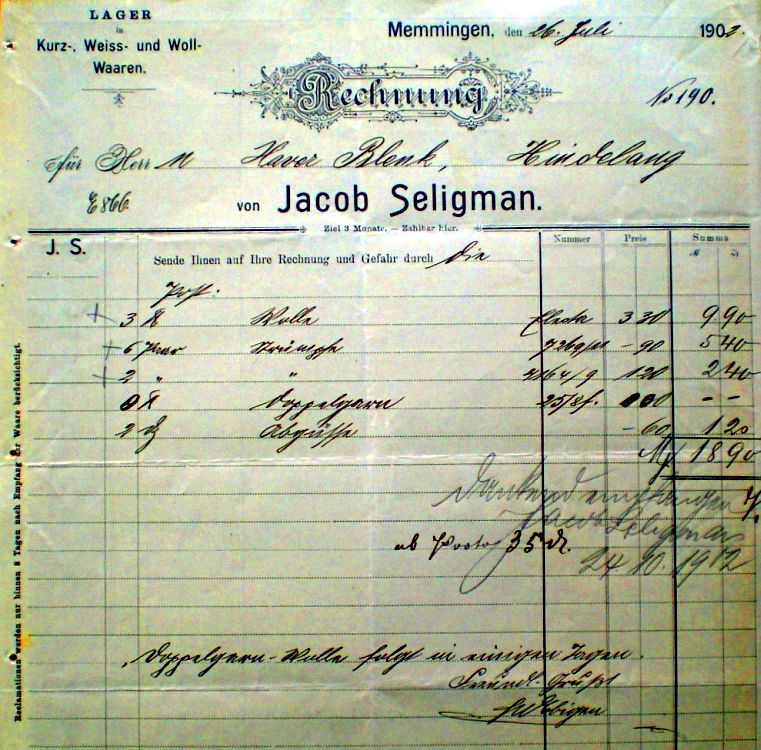 LAGER
in
Kurz-, Weiss- und Woll-
Waaren.
Memmingen, den 26. Juli 1902.
Rechnung
No 190.
für Herrn Xaver Blenk, Hindelang
E 866
von Jacob Seligman.
Ziel 3 Monate. — Zahlbar hier.
J. S.
Nummer Preis Summa
M
Sende Ihnen auf Ihre Rechnung und Gefahr durch die
Post:
3 Wolle 3 30 9.90
6 Paar Strümpfe – 90 5 40
2 " " 1 20 2 40
Doppelgarn – –
2 – 60 1 20
M 18 90
Dankend empfangen
Jacob Seligman
24 10. 1902
ab Porto 35
Doppelgarn-Wolle folgt in einigen Tagen.
Freundl. Grüßt
Reclamationen werden nur binnen 8 Tagen nach Empfang der Waare berücksichtigt.